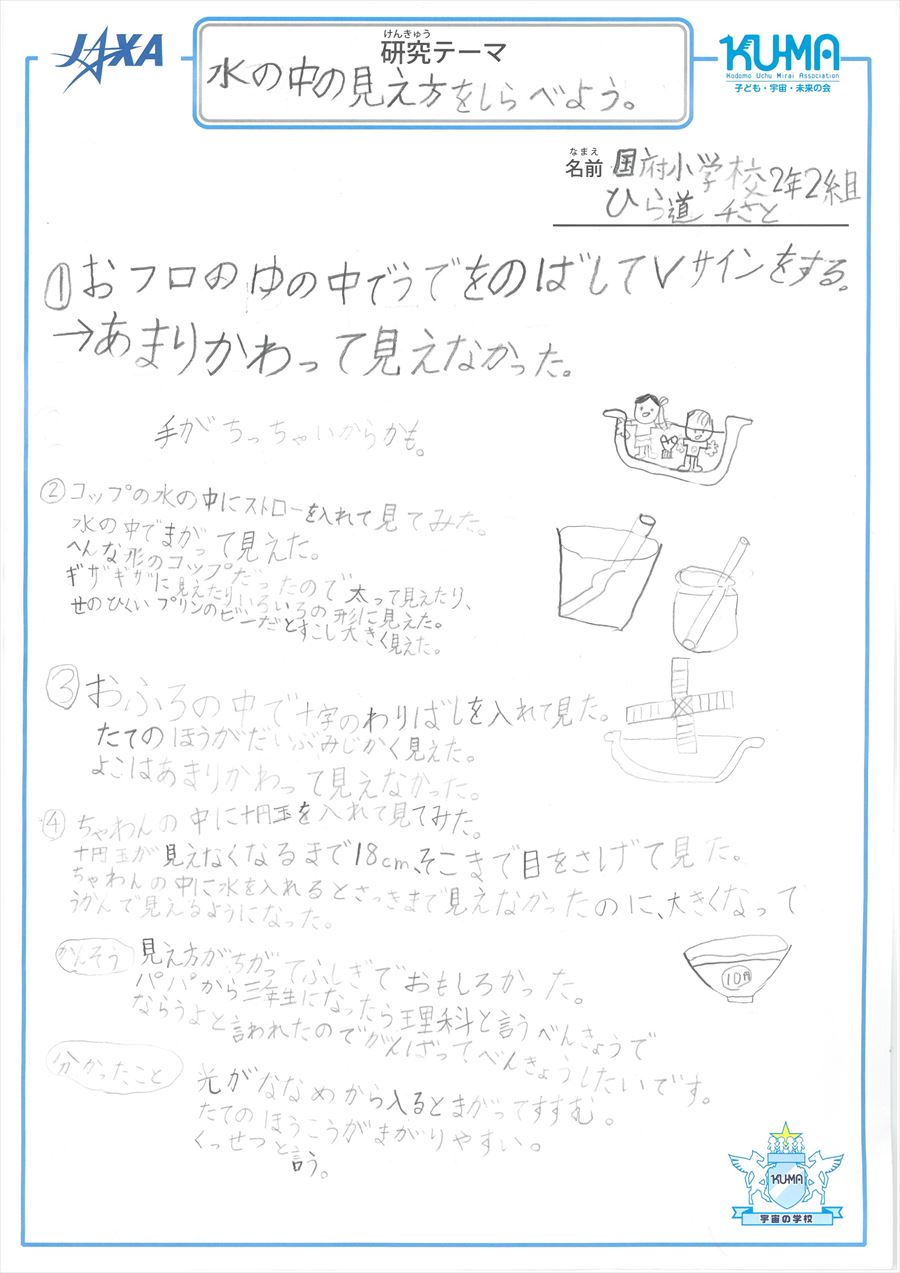 JAXA
けんきゅう
研究テーマ
水の中の見え方をしらべよう。
KU-MA
Kodomo Uchu Mirai Association
子ども・宇宙・未来の会
なまえ
名前 国府小学校2年2組
ひら道 千さと
①おフロのゆの中でうでをのばしてVサインをする。
→あまりかわって見えなかった。
手がちっちゃいからかも。
②コップの水の中にストローを入れて見てみた。
水の中でまがって見えた。
へんな形のコップだったので太って見えたり、
ギザギザに見えたりいろいろの形に見えた。
せのひくいプリンのビンだとすこし大きく見えた。
③おふろの中で十字のわりばしを入れて見た。
たてのほうがだいぶみじかく見えた。
よこはあまりかわって見えなかった。
④ちゃわんの中に十円玉を入れて見てみた。
十円玉が見えなくなるまで18cm、そこまで目をさげて見た。
ちゃわんの中に水を入れるとさっきまで見えなかったのに、大きくなって
うかんで見えるようになった。
10円
かんそう 見え方がちがってふしぎでおもしろかった。
パパから三年生になったら理科と言うべんきょうで
ならうよと言われたのでがんばってべんきょうしたいです。
分かったこと 光がななめから入るとまがってすすむ。
たてのほうこうがまがりやすい。
くっせつと言う。
KU-MA
宇宙の学校